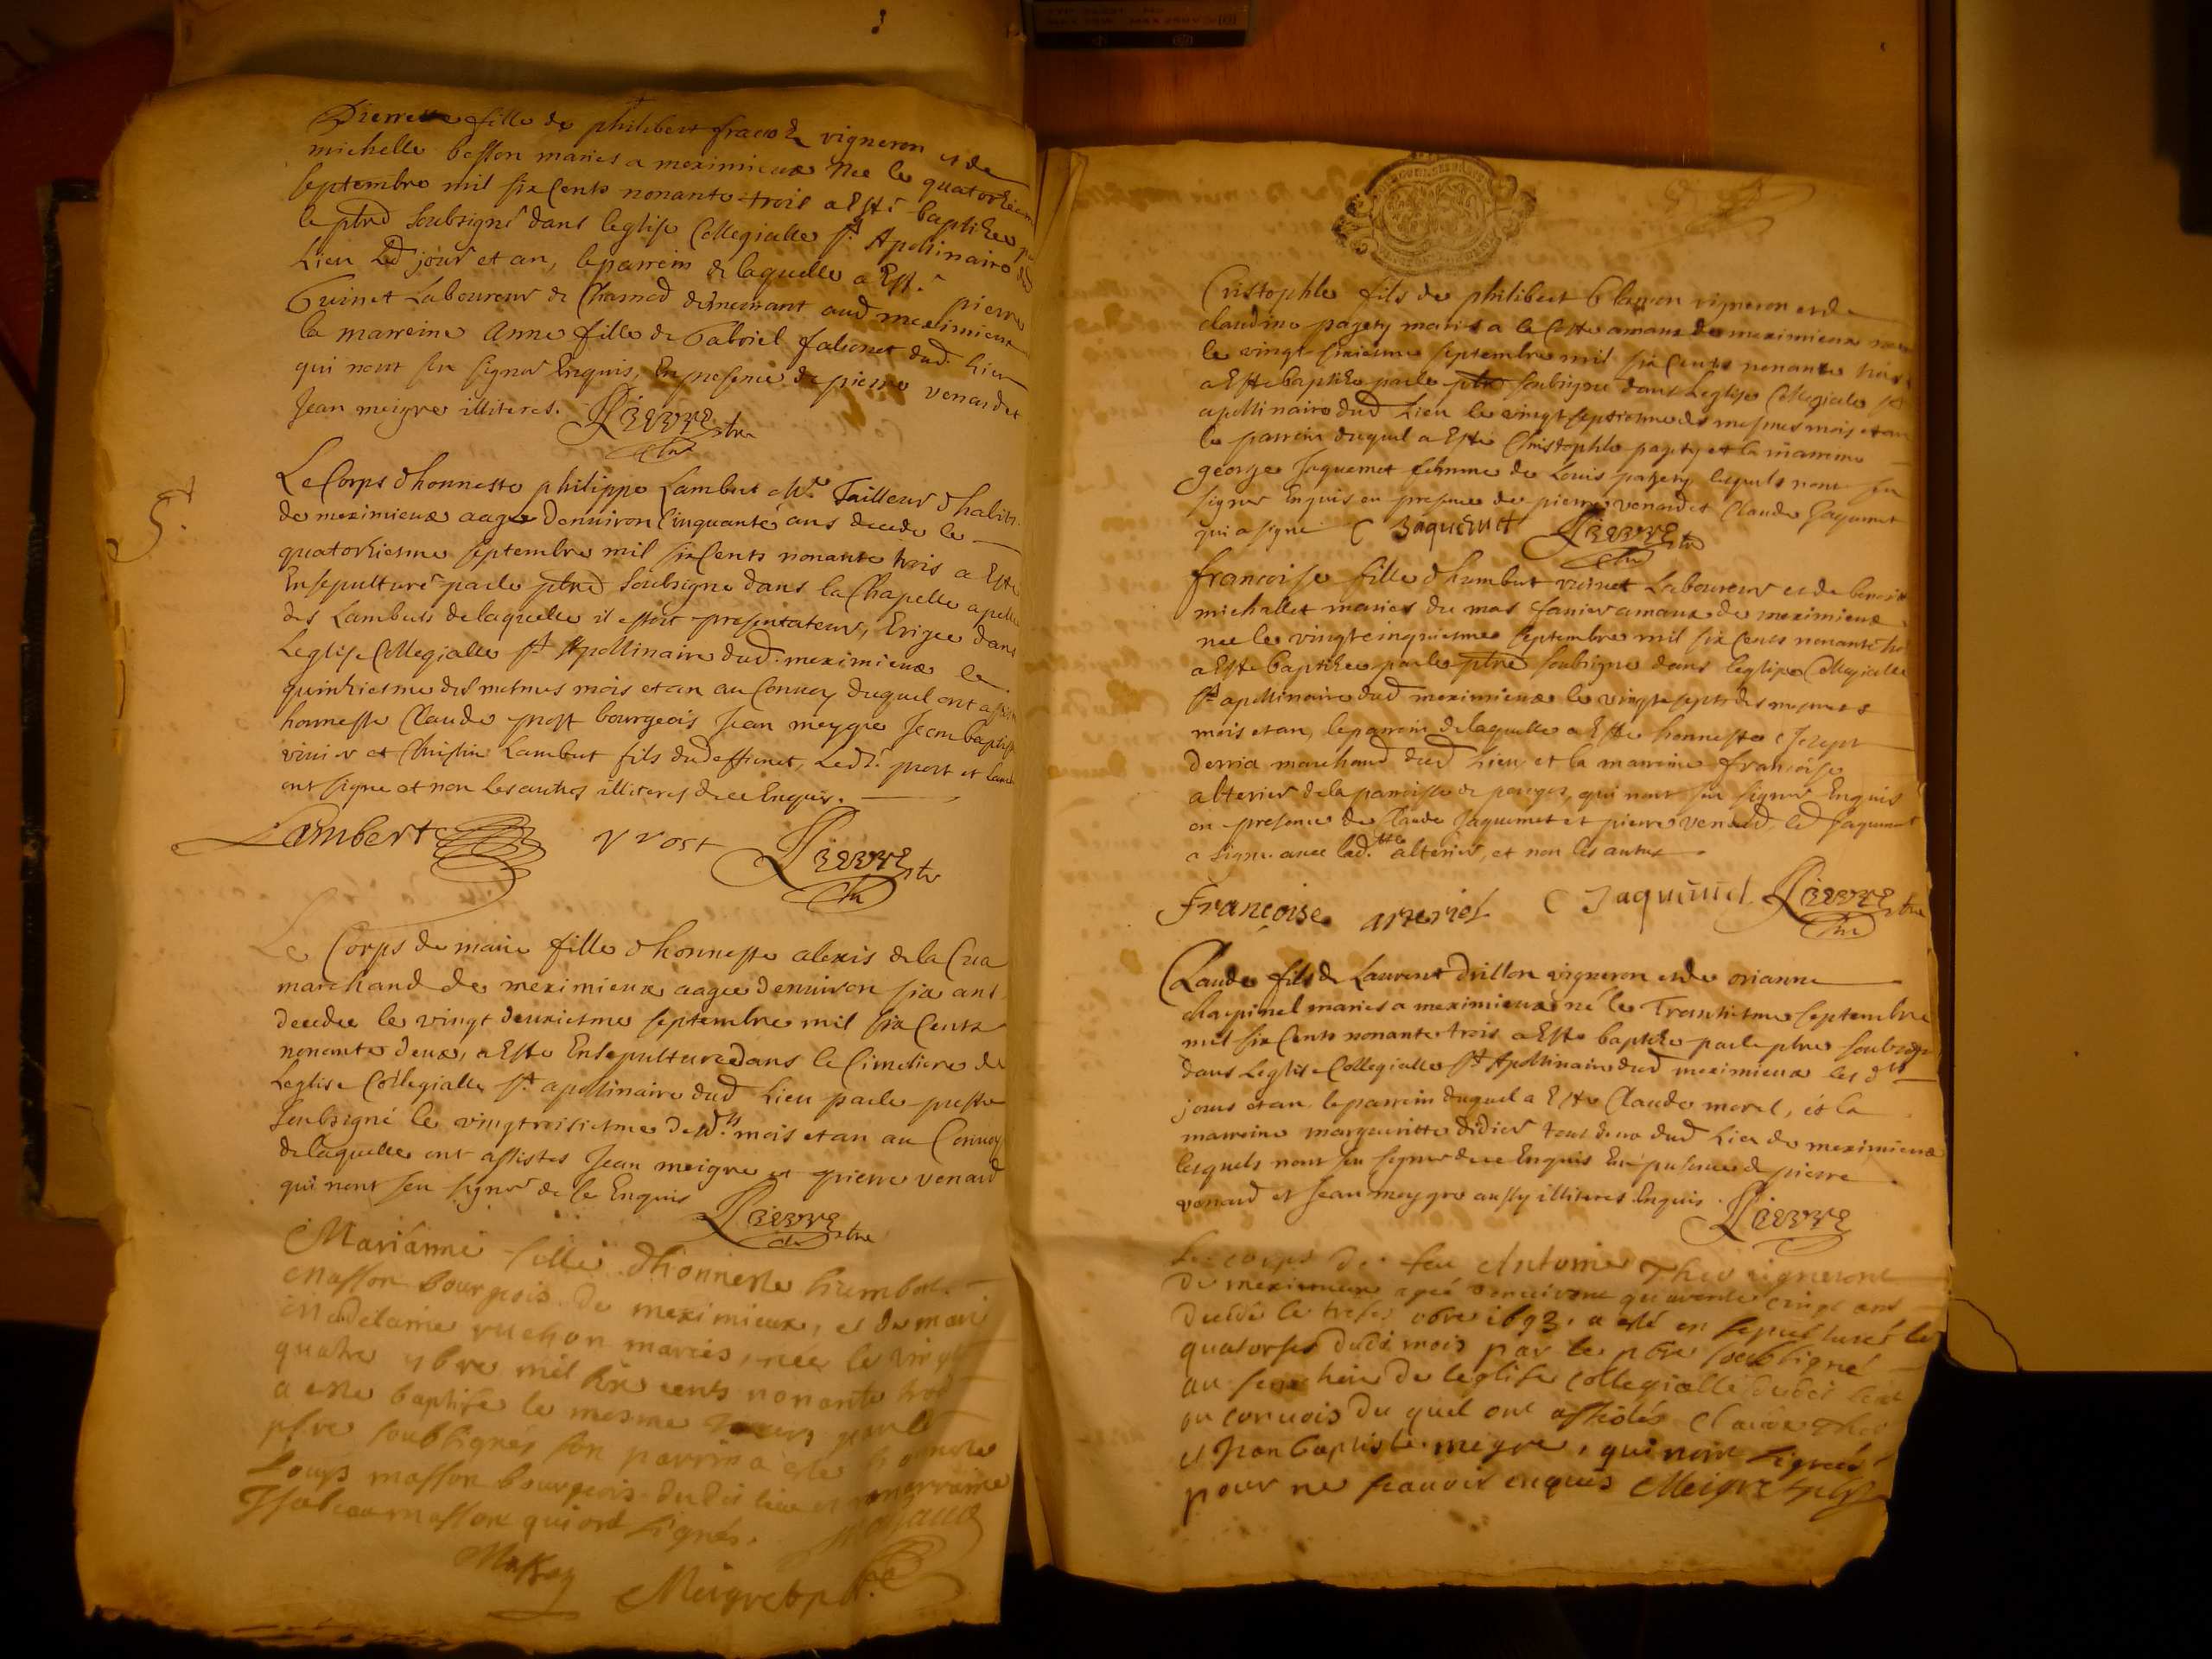 Pierrette fille de philibert vigneron et de
michelle besson maries a meximieux Nee le quatorziem
septembre mil six Cents nonante trois a Esté baptizee
le pbre soubsigné dans leglise Collegialle st Apollinaire dud
Lieu led jour et an, le parrein de laquelle a Esté pierre
Guinet Laboureur de Chamod demeurant aud meximieux
la marreine Anne fille de Gabriel falconet dud. lieu
qui nont sceu signer Enquis, En presence de pierre venard et
Jean meigre illiteres.
Le Corps dhonneste philippe Lambert Tailleur dhabits
de meximieux aagé denuiron Cinquante ans decede le
quatorziesme septembre mil six Cents nonante trois a Esté
Ensepulturé par le pbre soubsigné dans la Chapelle apellee
des Lamberts de laquelle il estoit presentateur, Erigee dans
Leglise Collegialle st Apollinaire dud. meximieux le
quinziesme des mesmes mois et an au Conuoy duquel ont assisté
honneste Claude prost bourgeois Jean meygre Jean baptiste
et Lambert fils dud effunct, Led. prost et Lambert
ont signe et non les autres illiteres de ce Enquis.
Lambert prost
Le Corps de marie fille dhonneste alexis de la Crua
marchand de meximieux aagee denuiron six ans
decedee le vingt deuxiesme septembre mil six Cents
nonante deux, a Este Ensepulturee dans le Cimetiere de
Leglise Collegialle st apollinaire dud Lieu par le prestre
soubsigné le vingtroisiesme desd.ts mois et an au Conuoy
de laquelle ont assistes Jean meigre et pierre venard
qui nont sceu signer de Ce Enquis
Marianne fille dhonneste humbert
masson bourgeois de meximieux, et de marie
madelaine ruchon maries, nee le vingt
quatre 7bre mil six cents nonante trois
a este baptisee le mesme jour par le
pbre soubsignés son parrin a este honneste
Louys masson bourgeois dudit lieu et marraine
Isabeau masson qui ont signés.
Masson Meigret pbr.
Cristophle fils de philibert vigneron et de
claudine pagety maries a la Coste amanx de meximieux
le vingt sixiesme septembre mil six Cents nonante trois
a Esté baptizé par le pbre soubsigné dans Leglise Collegialle st
apollinaire dud Lieu le vingt septiesme des mesmes mois et an
le parrein duquel a Esté Christophle pagety et la marreine
george Jaquemet femme de Louis pagety lesquels nont sceu
signer Enquis en presence de pierre venard et Claude Jaquemet
qui a signé C Jaquemet
francoise fille dhumbert Laboureur et de benoite
michallet maries du mas amanx de meximieux
nee le vingt cinquiesme septembre mil six Cents nonante trois
a Esté baptizee par le pbre soubsigné dans leglise Collegialle
st apollinaire dud meximieux le vingt sept des mesmes
mois et an, le parrein de laquelle a Esté honneste Josept
Derria marchand dud Lieu et la marreine francoise
alterier de la parroisse de perges, qui nont sceu signer Enquis
en presence de Claude Jaquemet et pierre venard, led Jaquemet
a signe auec lad. alterier, et non les autres
Françoise C Jaquemet
Claude fils de Laurent Drillon vigneron et de orianne
chapinel maries a meximieux né le Trantiesme septembre
mil six Cents nonante trois a Esté baptizé par le pbre soubsigné
dans Leglise Collegialle st Apollinaire dud meximieux les d.ts
jours et an, le parrein duquel a Esté Claude morel, et la
marreine margueritte didier tous deux dud Lieu de meximieux
lesquels nont sceu signer de ce Enquis En presence de pierre
venard et Jean meygre aussy illiteres Enquis.
Le corps de feu Antoine Theo vigneront
de meximieux agé denuiront quarente cinq ans
decedé le treise 1693. a esté en sepulturé le
quatorse dudit mois par le pbre soubsigné
au semetiere de leglise collegialle dudit lieu
au conuois du quel ont assistés Claude Theo
et Jean baptiste meigre, qui nont signés
pour ne scauoir enquis Meigret pbr